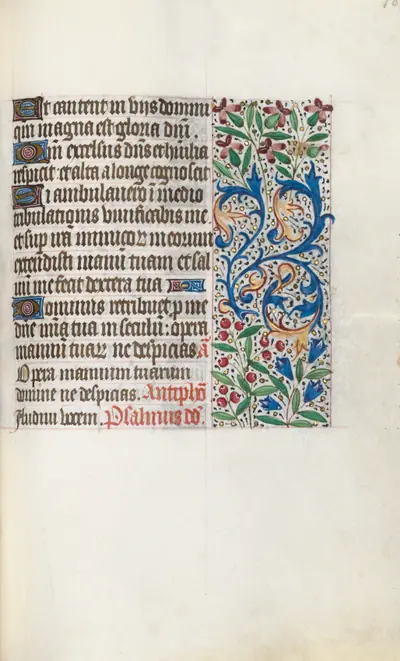 Et cantent in viis domini
qm magna est gloria dni.
Qm excelsus dns et humilia
respicit et alta a longe cognoscit
Si ambulavero i medio
tribulationis vivificabis me
et sup iram inimicor meorum
extendisti manu tuam et sal
uu me fecit dextera tua
Dominus retribuet p me
dne mia tua in seculu: opera
manuu tuar ne despicias. a
Opera manuum tuarum
domine ne despicias. Antipho
Audivi vocem. Psalmus do